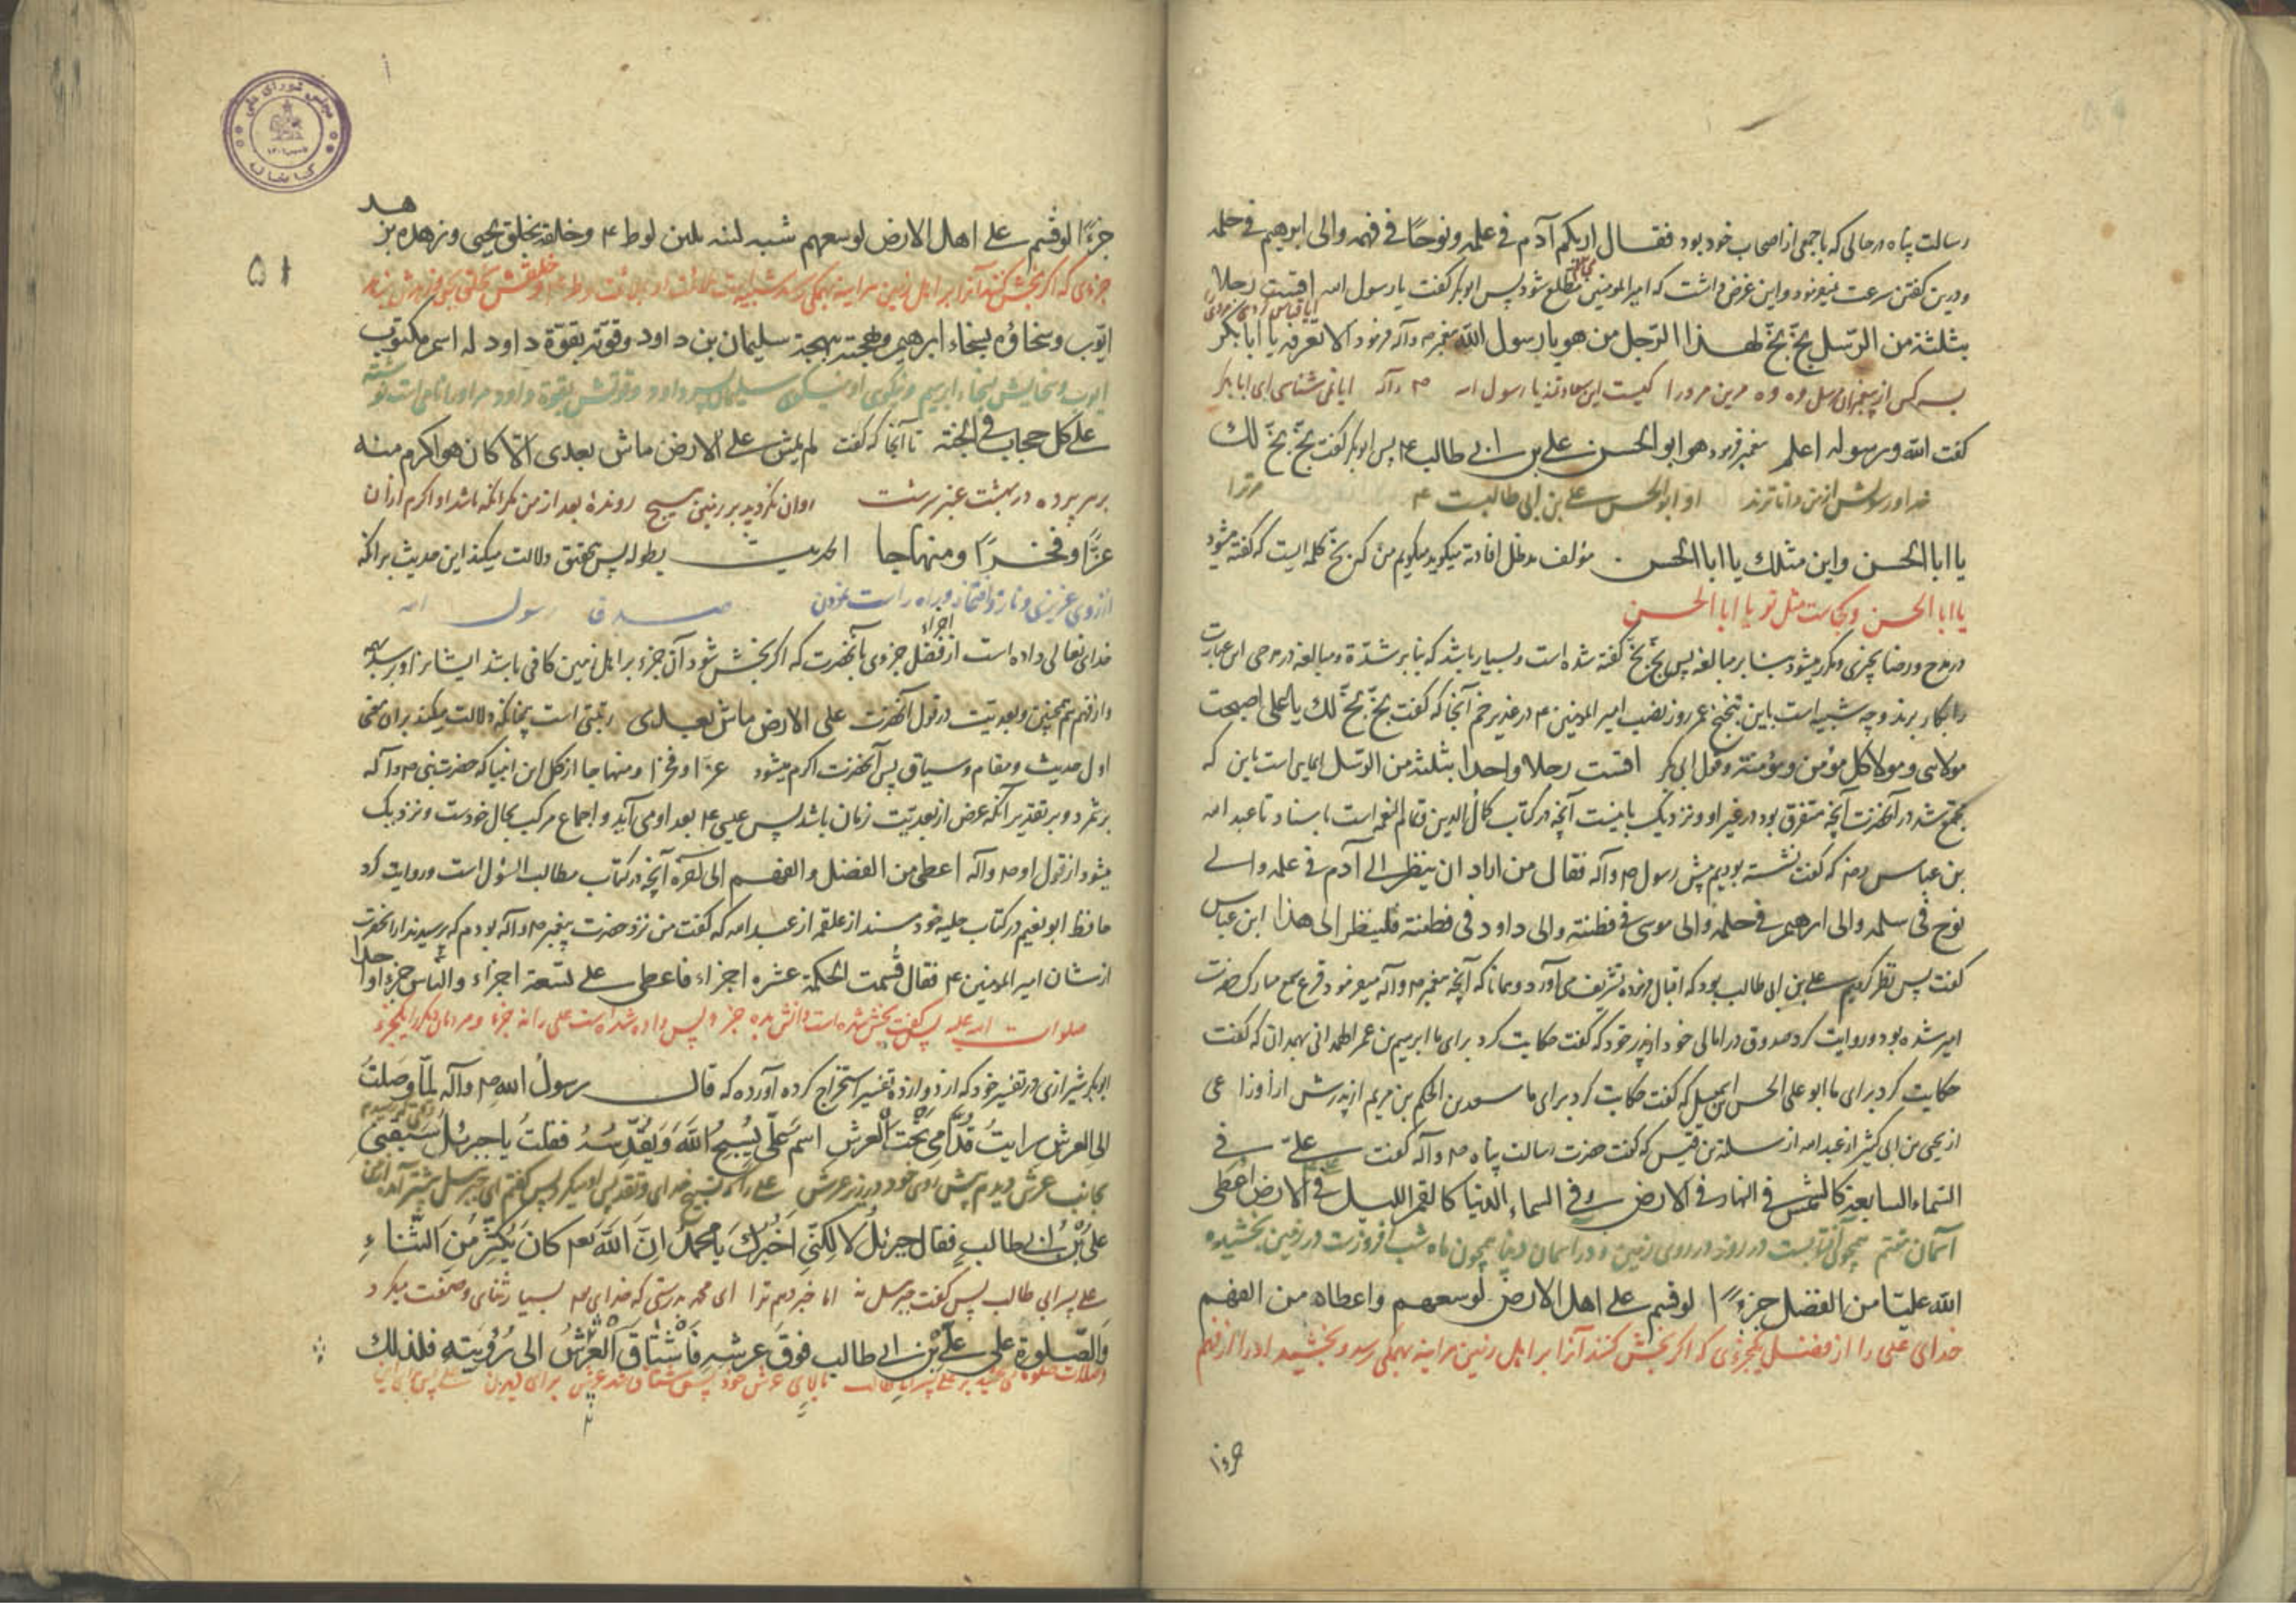 رسالت پناه در حالی که با جمعی از اصحاب خود بود فقال اریکم آدم فی علمه ونوحًا فی فهمه والی ابرهیم فی حلمه
ودرین کفتن سرعت میفرمود واین غرض داشت که امیر المومنین مطلع شود پس ابو بکر کفت یا رسول الله اقست رجلا
بثلثة من الرسل بخّ بخّ لهذا الرّجل من هو یا رسول الله پیغمبر ص وآله فرمود الا تعرفه یا ابا بکر
بسه کس از پیغمبران مرسل وه وه مرین مرد را کیست این یا رسول الله ص وآله ایا نمی شناسی ای ابا بکر
کفت الله ورسوله اعلم پیغمبر فرمود هو ابو الحسن علی بن ابی طالب ع پس ابو بکر کفت بخّ بخّ لك
خدا ورسولش از من دانا ترند او ابو الحسن علی بن ابی طالبست ع مر ترا
یا ابا الحسن واین مثلك یا ابا الحسن . مؤلف مد ظل افادته میکوید میکویم من که بخّ کلمه ایست که کفته میشود
یا ابا الحسن وکجاست مثل تو یا ابا الحسن
در مدح ورضا بچیزی ومکرر میشود بنا بر مبالغه پس بخّ بخّ کفته شده است وبسیار باشد که بنا بر شدّة ومبالغه در مدحی این عبارت
را بکار برند وچه شبیه است باین بخبخ عمر روز نصب امیر المومنین ع در غدیر خم آنجا که کفت بخّ بخّ لك یا علی اصبحت
مولای ومولا کل مؤمن ومؤمنة وقول ابی بکر اقست رجلا واحدا بثلثة من الرسل ایمایی است باین که
مجتمع شد در آنحضرت آنچه متفرق بود در غیر او ونزدیک باینست آنچه در کتاب کمال الدین وتمام النعمه است باسناد تا عبد الله
بن عباس رض که کفت نشسته بودیم پیش رسول ص وآله فقال من اراد ان ینظر الی آدم فی علمه والی
نوح فی سلمه والی ابرهیم فی حلمه والی موسی فی فطنته والی داود فی فطنته فلینظر الی هذا ابن عباس
کفت پس نظر کردیم علی بن ابی طالب بود که اقبال فرموده تشریف می آورد وهمانا که آنچه پیغمبر ص وآله میفرمود قرع سمع مبارک حضرت
امیر شده بود وروایت کرد صدوق در امالی خود از پدر خود که کفت حکایت کرد برای ما ابراهیم بن عمر الهمدانی بهمدان که کفت
حکایت کرد برای ما ابو علی الحسن بن اسمعیل که کفت حکایت کرد برای ما سعید بن الحکم بن مریم از پدرش از اوزاعی
از یحیی بن ابی کثیر از عبد الله از سلمة بن قیس که کفت حضرت رسالت پناه ص وآله کفت علیّ فی
السّماء السابعة کالشمس فی النهار فی الارض وفی السماء الدنیا کالقمر اللیل فی الارض اعطی
آسمان هفتم همچون آفتابست در روز در روی زمین ودر آسمان دنیا همچون ماه شب افروزست در زمین بخشیده
الله علیّا من الفضل جزءًا لو قسم علی اهل الارض لوسعهم واعطاه من الفهم
خدای علی را از فضل یکجزوی که اکر بخش کنند آنرا بر اهل زمین هراینه بهمکی رسد وبخشید او را از فهم
جزءًا
جزءًا لو قسم علی اهل الارض لوسعهم شبه لینه بلین لوط ع وخلقه بخلق یحیی وزهده بزهد
جزءی که اکر بخش کنند آنرا بر اهل زمین هراینه بهمکی رسد
ایّوب وسخاؤه بسخاء ابرهیم وبهجته ببهجة سلیمان بن داود وقوّته بقوّة داود له اسم مکتوب
ایوب وسخایش بسخاء ابراهیم ونیکویی او بنیکویی سلیمان پسر داود وقوتش بقوة داود مر او را نامی است نوشته
علی کل حجاب فی الجنّة تا آنجا که کفت لم یمش علی الارض ماش بعدی الّا کان هو اکرم منه
بر هر پرده در بهشت عنبر سرشت روان نکردید بر زمین هیچ روندهٔ بعد از من مکر آنکه باشد او اکرم از آن
عزًّا وفخرًا ومنهاجا الحدیث بطوله پس بتحقیق دلالت میکند این حدیث بر آنکه
از روی عزیزی ونازو افتخار وبراه راست نمودن صدق رسول الله
خدای تعالی داده است از اجزاء فضل جزوی بآنحضرت که اکر بخش شود آن جزء بر اهل زمین کافی باشد ایشانرا وبرسد بهمه
واز فهم همچنین وبعدیت در قول آنحضرت علی الارض ماش بعدی رتبتی است چنانکه دلالت میکند بر آن معنی
اول حدیث ومقام وسیاق پس آنحضرت اکرم میشود عزًا وفخرًا ومنهاجا از کل این انبیا که حضرت نبی ص وآله
برشمرد وبر تقدیر آنکه غرض از بعدیّت زمان باشد پس عیسی ع بعد او می آید واجماع مرکب بحال خودست ونزدیک
میشود از قول او ص وآله اعطی من الفضل والفهم الی آخره آنچه در کتاب مطالب السؤل است وروایت کرد
حافظ ابو نعیم در کتاب حلیه خود بسند از علقمه از عبد الله که کفت من نزد حضرت پیغمبر ص وآله بودم که پرسیدند از آنحضرت
از شان امیر المومنین ع فقال قسمت الحکمة عشره اجزاء فاعطی علی تسعة اجزاء والنّاس جزءًا واحدا
صلوات الله علیه پس کفت بخش شده است دانش بده جزء پس داده شده است علی را نه جزء ومردمان دیکر را یکجزء
ابو بکر شیرازی در تفسیر خود که از دوازده تفسیر استخراج کرده آورده که قال رسولُ اللهِ ص وآله لمّا وصلتُ
الی العرشِ رایتُ قدّامی تحتَ العرشِ اسم علی یُسبّحُ اللهَ ویقدّسهُ فقلتُ یا جبرئیل سبقنی
بجانب عرش دیدم پیش روی خود در زیر عرش علی را که تسبیح خدای وتقدیس او میکرد پس کفتم ای جبرئیل پیشتر آمد از من
علیّ بن ابی طالبٍ فقال جبرئیلُ لا لکنّی اُخبرُكَ یا محمّدُ انّ اللهَ تعم کانَ یُکثّرُ منَ الثّناءِ
علی پسر ابی طالب پس کفت جبرئیل نه اما خبر دهم ترا ای محمد بدرستی که خدای تعم بسیار ثنای وصفت میکرد
والصّلوةِ علی علیّ بن ابی طالب فوق عرشه فاشتاق العرشُ الی رُؤیته فلذلك
۵۱
مجلس شورای ملی
کتابخانه